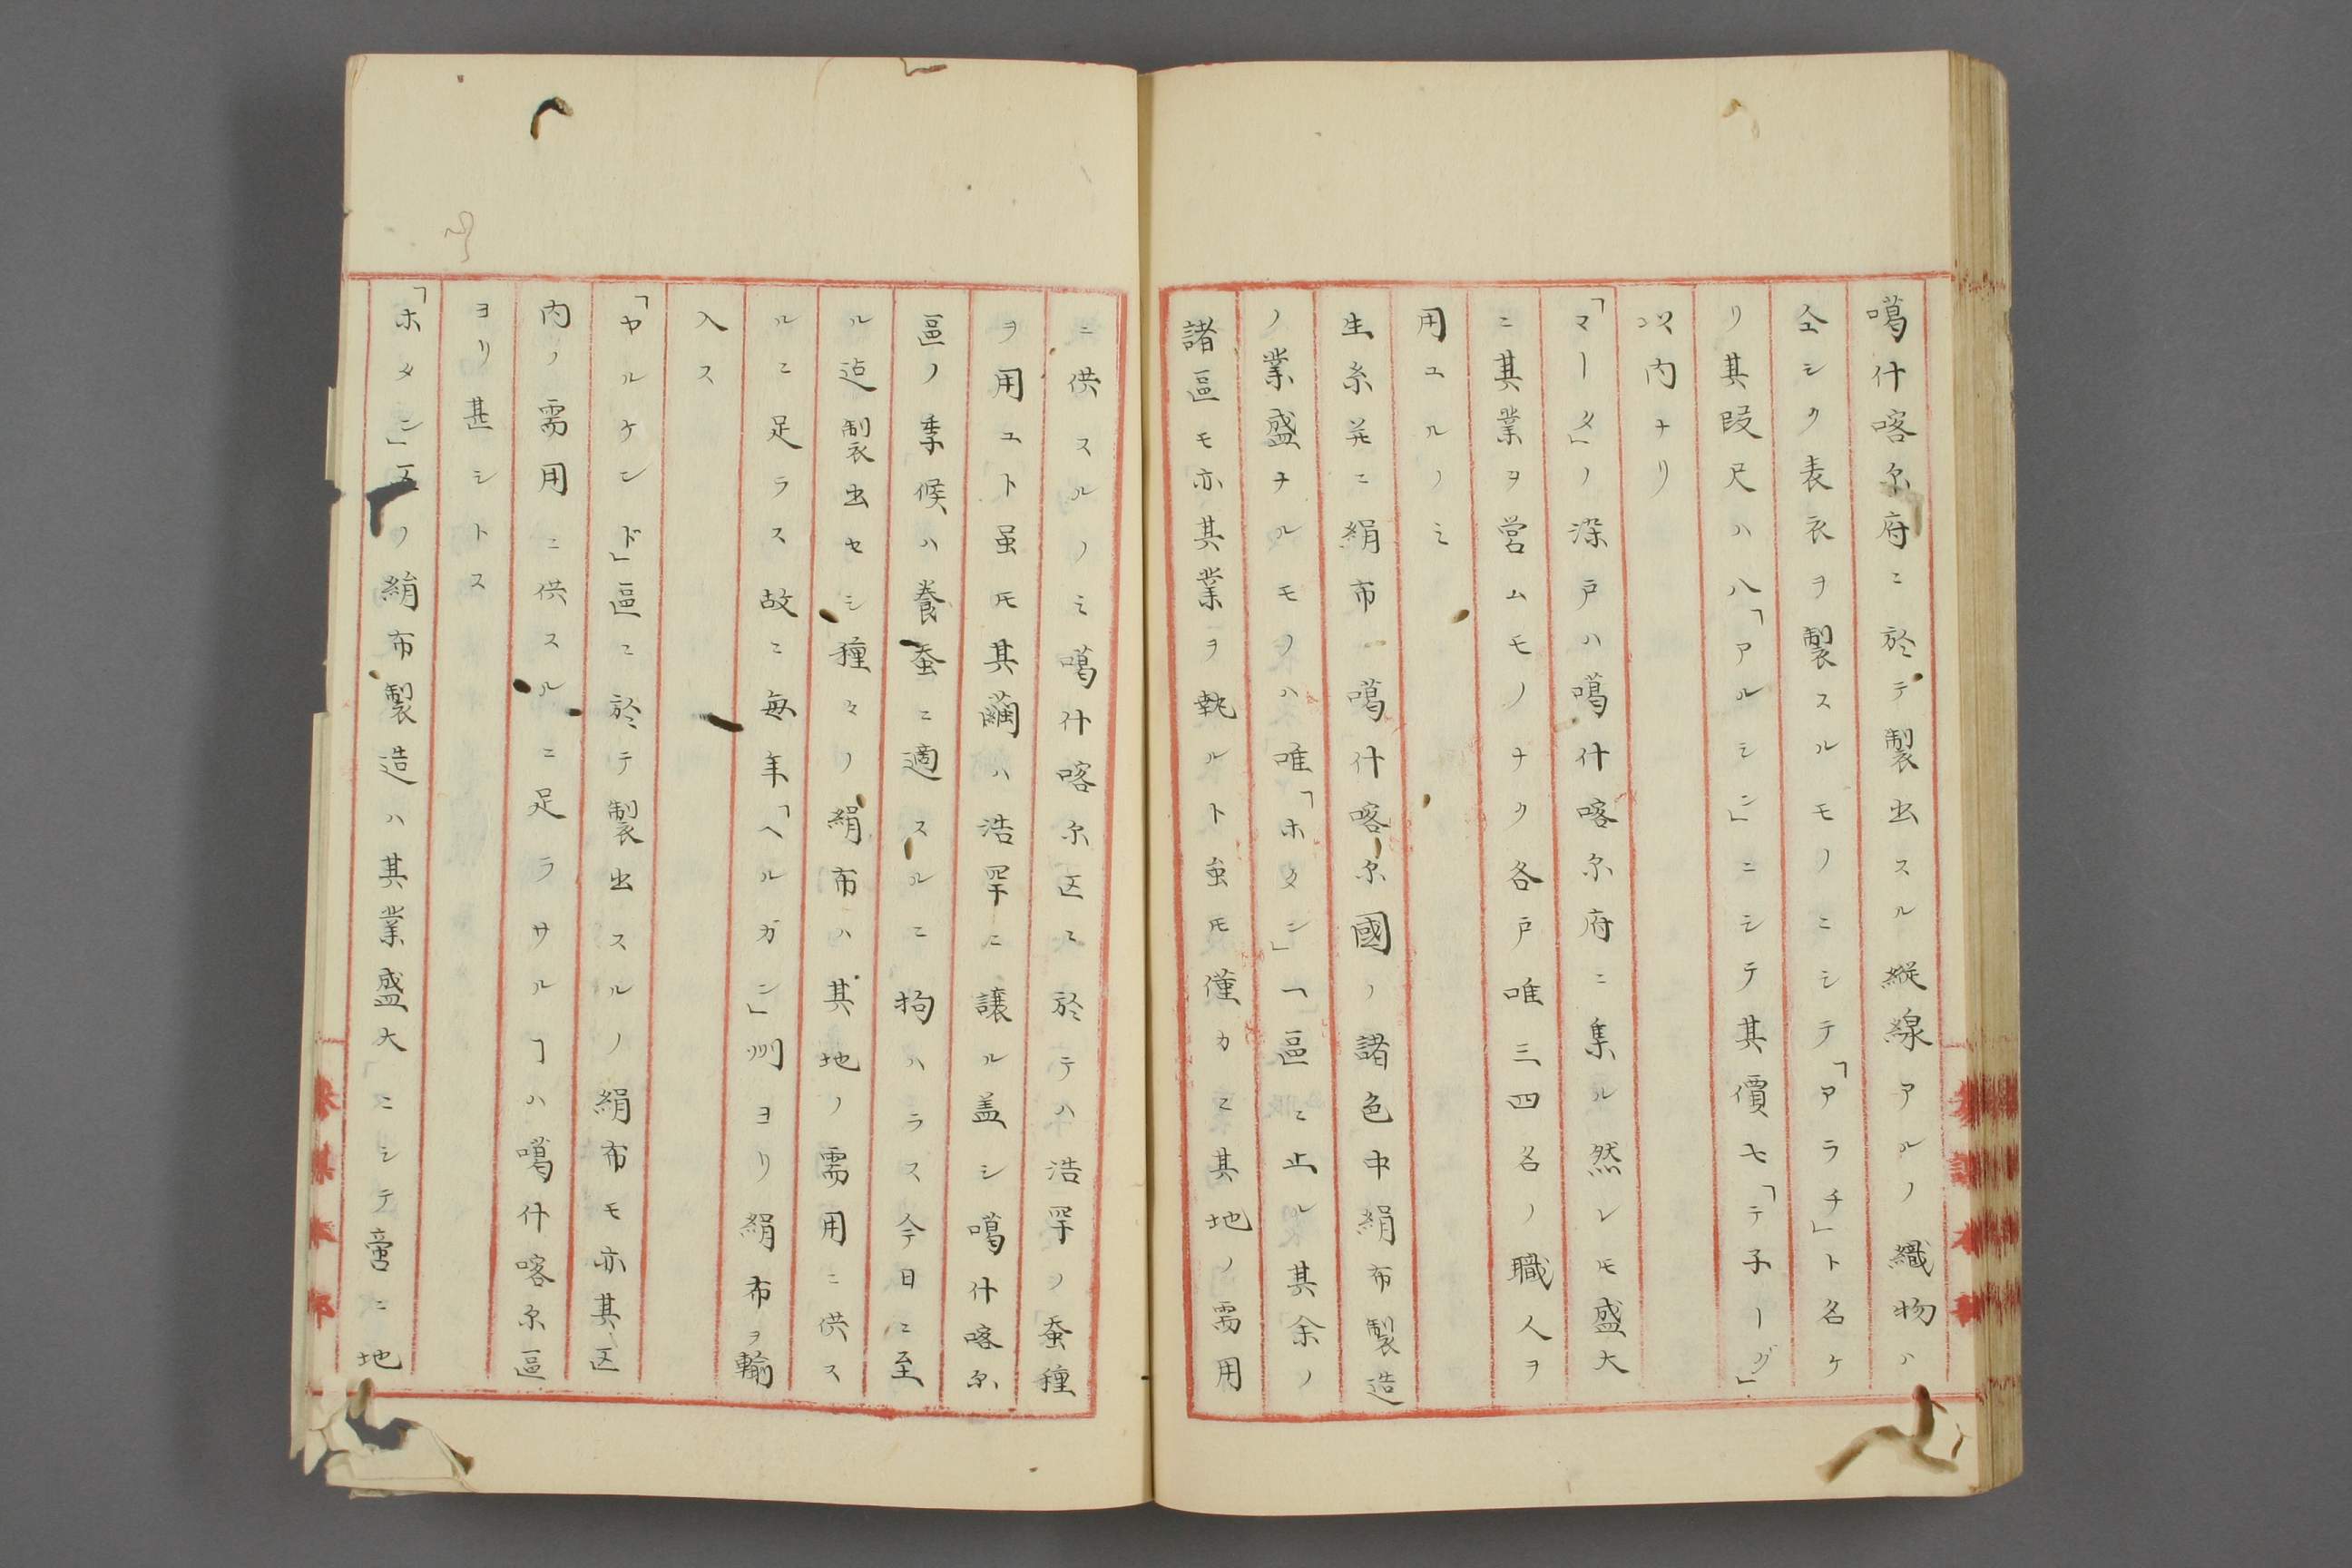 噶什喀尓府ニ於テ製出スル縦線アルノ織物ハ
全シク表衣ヲ製スルモノニシテ「アラチ」ト名ケ
リ其段尺ハ八「アルシン」ニシテ其價七「テ子ーグ」
以内ナリ
「マータ」ノ深戸ハ噶什喀尓府ニ集ル然レ𪜈盛大
ニ其業ヲ営ムモノナク各戸唯三四名ノ職人ヲ
用ユルノミ
生糸并ニ絹布 噶什喀尓國ノ諸色中絹布製造
ノ業盛ナルモノハ唯「ホタン」一區ニ止ル其余ノ
諸區モ亦其業ヲ執ルト虽𪜈僅カニ其地ノ需用
ニ供スルノミ噶什喀尓区ニ於テハ浩罕ノ蚕種
ヲ用ユト虽𪜈其繭ハ浩罕ニ譲ル盖シ噶什喀尓
區ノ季候ハ養蚕ニ適スルニ拘ハラス今日ニ至
ル迠製出セシ種々ノ絹布ハ其地ノ需用ニ供ス
ルニ足ラス故ニ毎年「ヘルガン」州ヨリ絹布ヲ輸
入ス
「ヤルケンド」區ニ於テ製出スルノ絹布モ亦其区
内ノ需用ニ供スルニ足ラサルヿハ噶什喀尓區
ヨリ甚シトス
「ホタン」区ノ絹布製造ハ其業盛大ニシテ啻ニ地